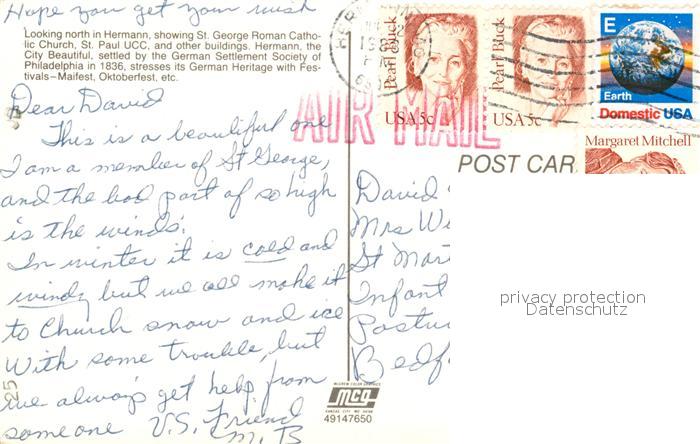 Hope you get your wish
Looking north in Hermann, showing St. George Roman Catho-
lic Church, St. Paul UCC, and other buildings. Hermann, the
City Beautiful, settled by the German Settlement Society of
Philadelphia in 1836, stresses its German Heritage with Fes-
tivals–Maifest, Oktoberfest, etc.
Dear David
This is a beautiful one
I am a member of St George,
and the bad part of so high
is the winds.
In winter it is cold and
windy but we all make it
to Church snow and ice
With some trouble, but
we always get help from
someone U.S. Friend
M. B
Pearl Buck
USA 5c
Pearl Buck
USA 5c
E
Earth
Domestic USA
AIR MAIL
Margaret Mitchell
POST CAR
David
Mrs Wi
St Mar
Infant
Bedf
privacy protection
Datenschutz
McGREW COLOR GRAPHICS
mcg
KANSAS CITY, MO 64108
49147650
25